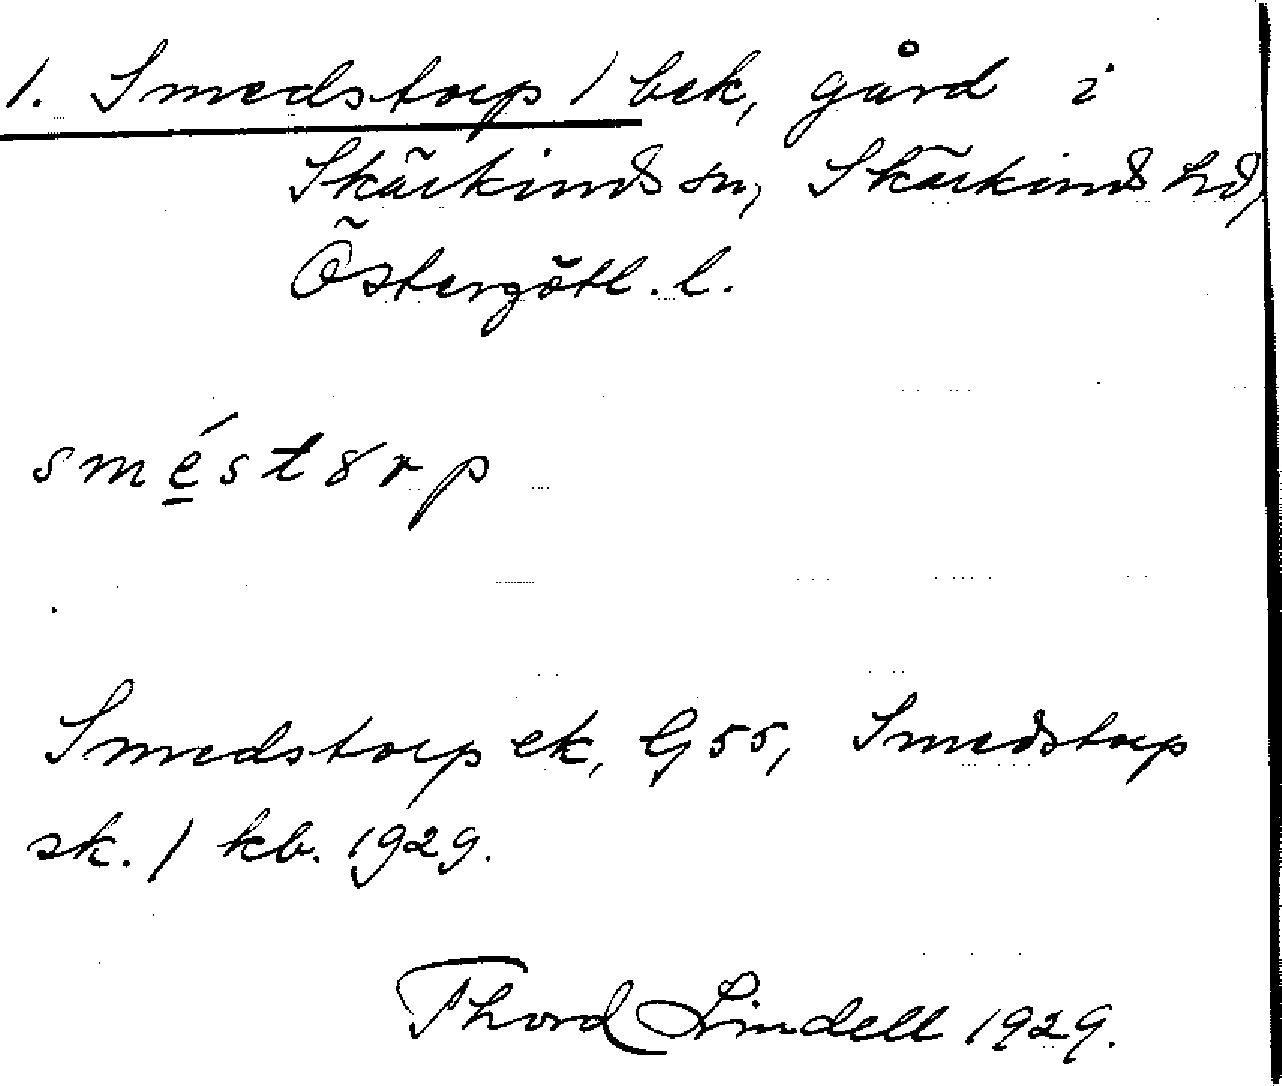 1. Smedstorp / bek, gård i
Skärkinds sn, Skärkinds hd,
Östergötl. l.
smé̲stȣrp
Smedstorp ek, G55, Smedstorp
sk. / kb. 1929.
Thord Lindell 1929.